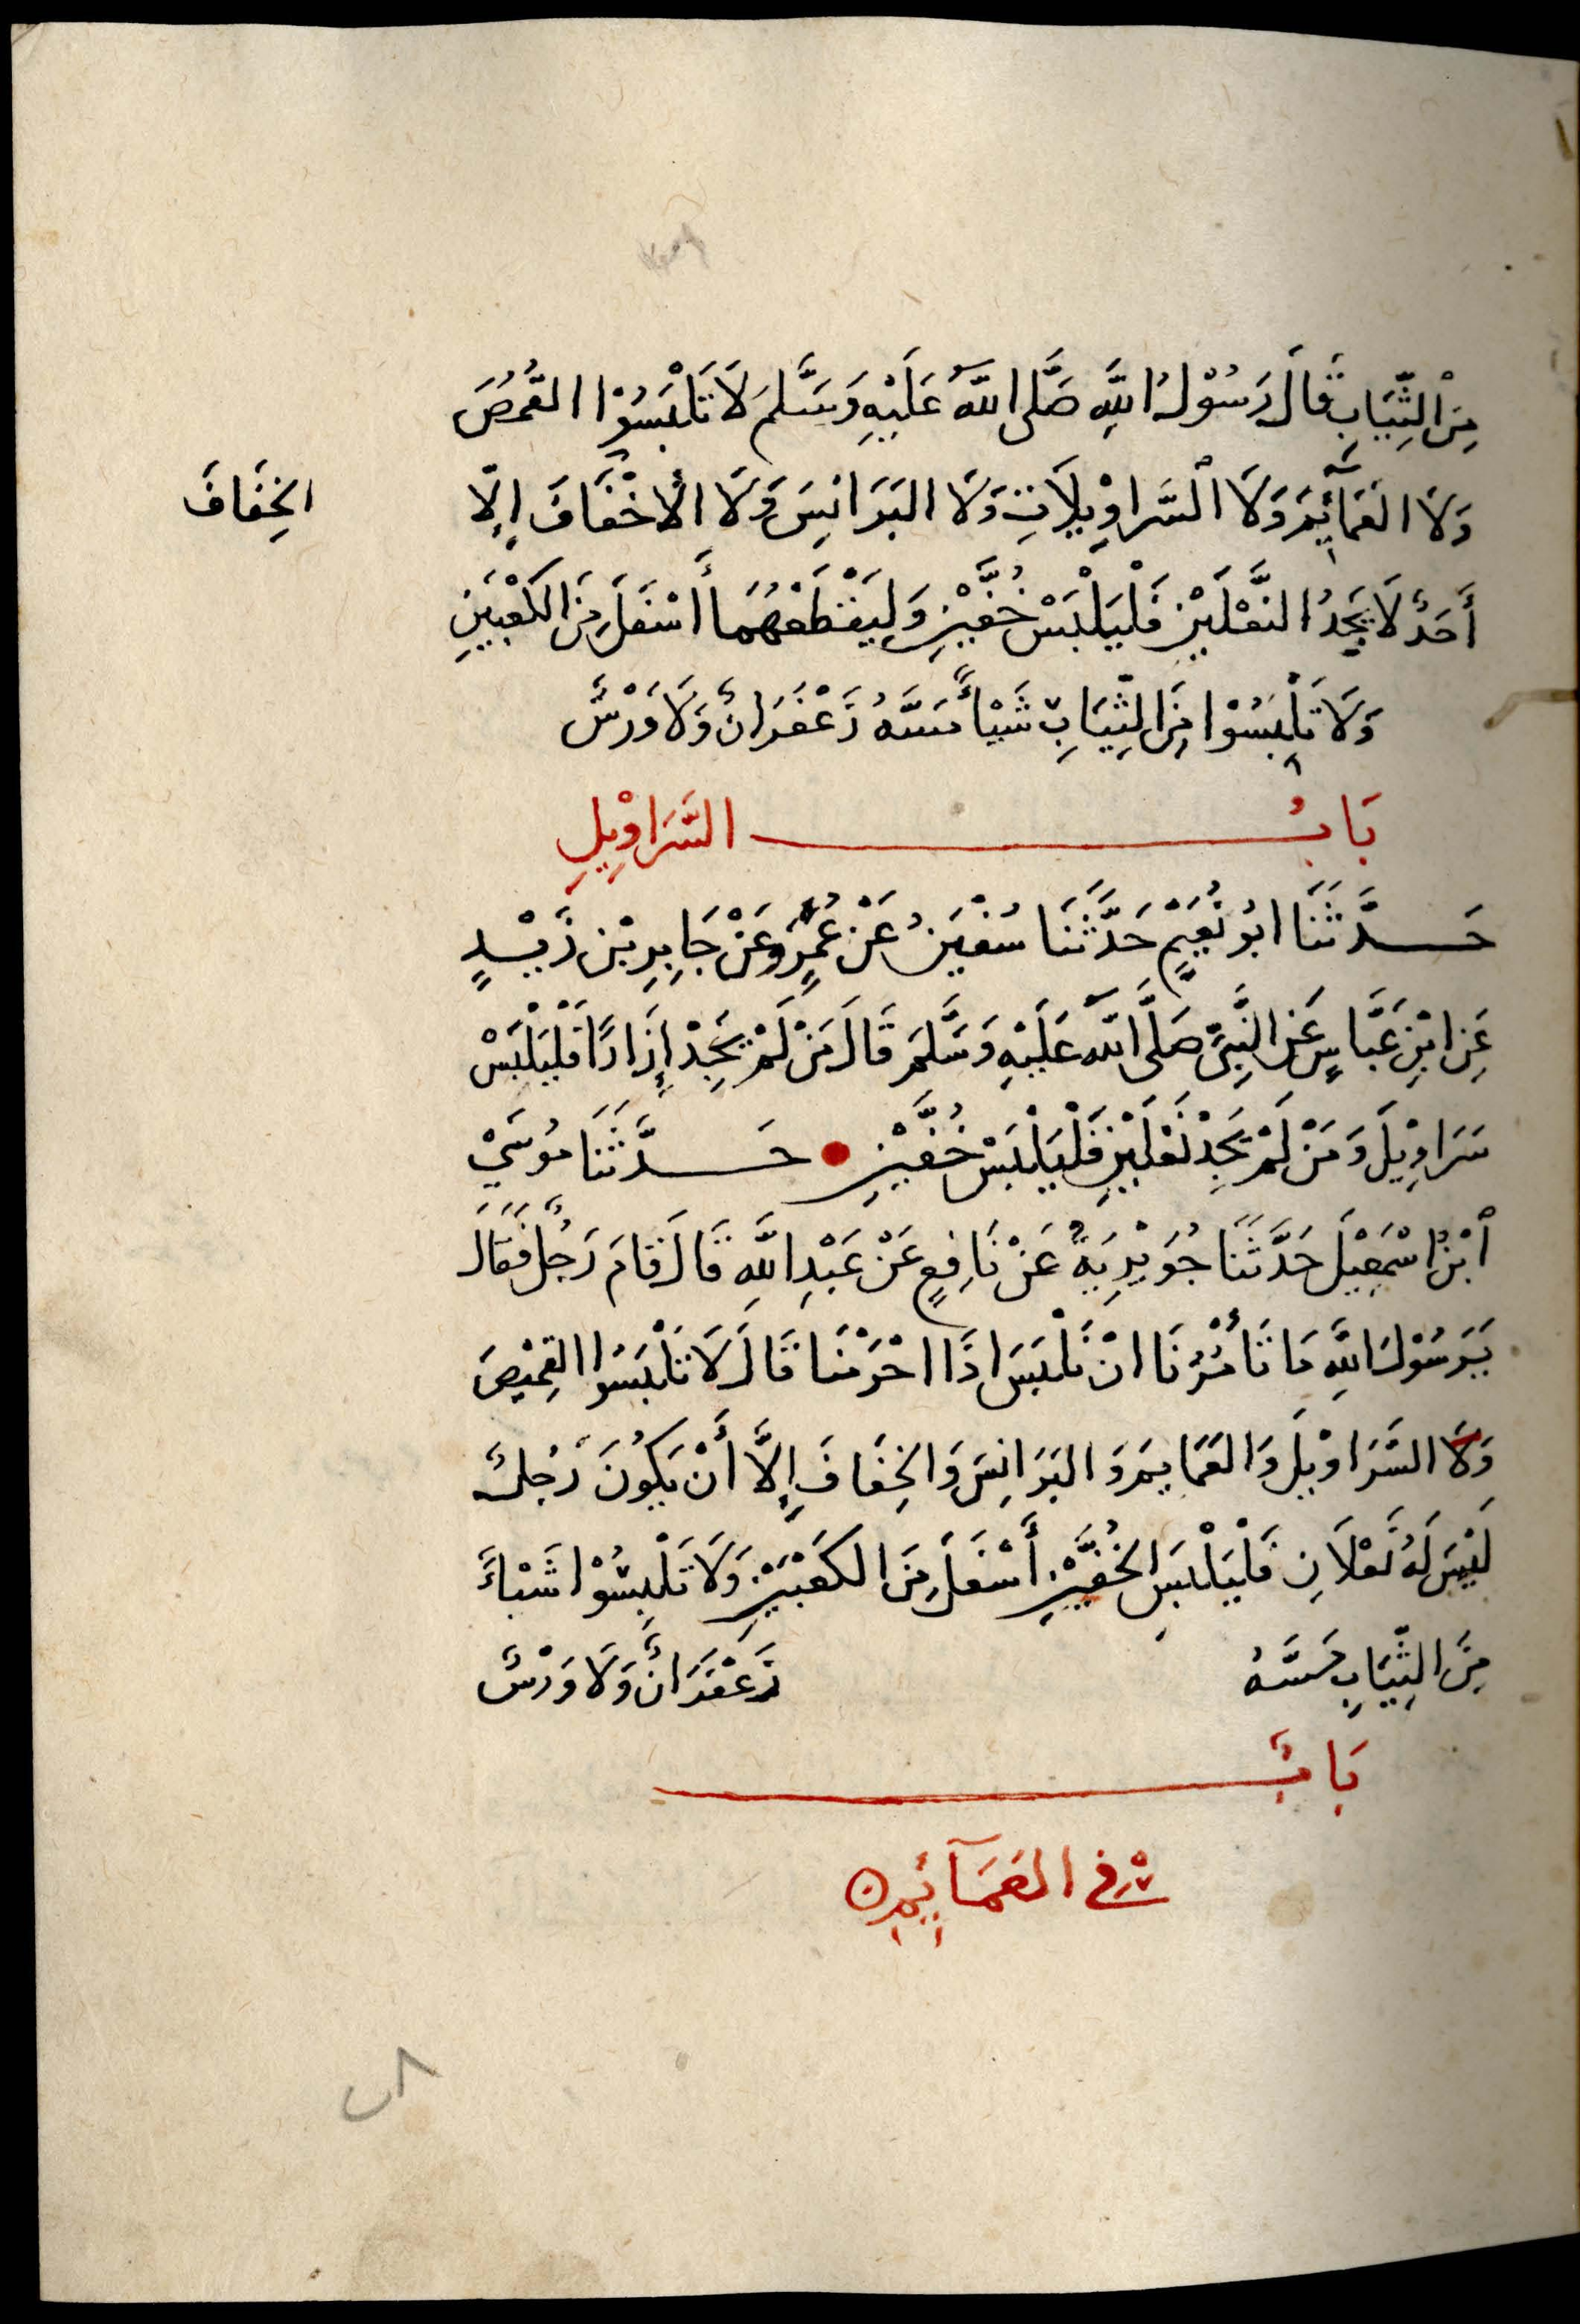 مِنَ الثِّيَابِ قَالَ رَسُوْلُ اللَّهِ صَلَّى اللَّهُ عَلَيْهِ وَسَلَّمَ لَا تَلْبَسُوْا القُمُصَ
وَلَا العَمَآئِمَ وَلَا السَّرَاوِيْلَاتِ وَلَا البَرَانِسَ وَلَا الأَخْفَافَ إِلَّا
الخِفَافَ
أَحَدٌ لَا يَجِدُ النَّعْلَيْنِ فَلْيَلْبَسْ خُفَّيْنِ وَلِيَقْطَعْهُمَا أَسْفَلَ مِنَ الكَعْبَيْنِ
وَلَا تَلْبَسُوْا مِنَ الثِّيَابِ شَيْأً مَسَّهُ زَعْفَرَانٌ وَلَا وَرْسٌ
بَابُ السَّرَاوِيْلِ
حَدَّثَنَا ابُو نُعَيْمٍ حَدَّثَنَا سُفْيَنُ عَنْ عُمَرٍو عَنْ جَابِرِ بْنِ زَيْدٍ
عَنِ ابْنِ عَبَّاسٍ عَنِ النَّبِيِّ صَلَّى اللَّهُ عَلَيْهِ وَسَلَّمَ قَالَ مَنْ لَمْ يَجِدْ إِزَارًا فَلْيَلْبَسْ
سَرَاوِيْلَ وَمَنْ لَمْ يَجِدْ نَعْلَيْنِ فَلْيَلْبَسْ خُفَّيْنِ حَدَّثَنَا مُوسَيْ
ابْنُ اسْمَعِيْلَ حَدَّثَنَا جُوَيْرِيَةُ عَنْ نَافِعٍ عَنْ عَبْدِ اللَّهِ قَالَ قَامَ رَجُلٌ فَقَالَ
يَرَسُوْلَ اللَّهِ مَا تَأْمُرُنَا انْ نَلْبَسَ اذَا احْرَمْنَا قَالَ لَا تَلْبَسُوا القَمِيْصَ
وَلَا السَّرَاوِيْلَ وَالعَمَايِمَ وَالبَرَانِسَ وَالخِفَافَ إِلَّا أَنْ يَكُونَ رَجُلٌ
لَيْسَ لَهُ نَعْلَانِ فَلْيَلْبَسِ الخُفَّيْنِ أَسْفَلَ مِنَ الكَعْبَيْنِ وَلَا تَلْبِسُوْا شَيْأً
مِنَ الثِّيَابِ مَسَّهُ زَعْفَرَانٌ وَلَا وَرْسٌ
بَابٌ
فِي العَمَآئِمِ